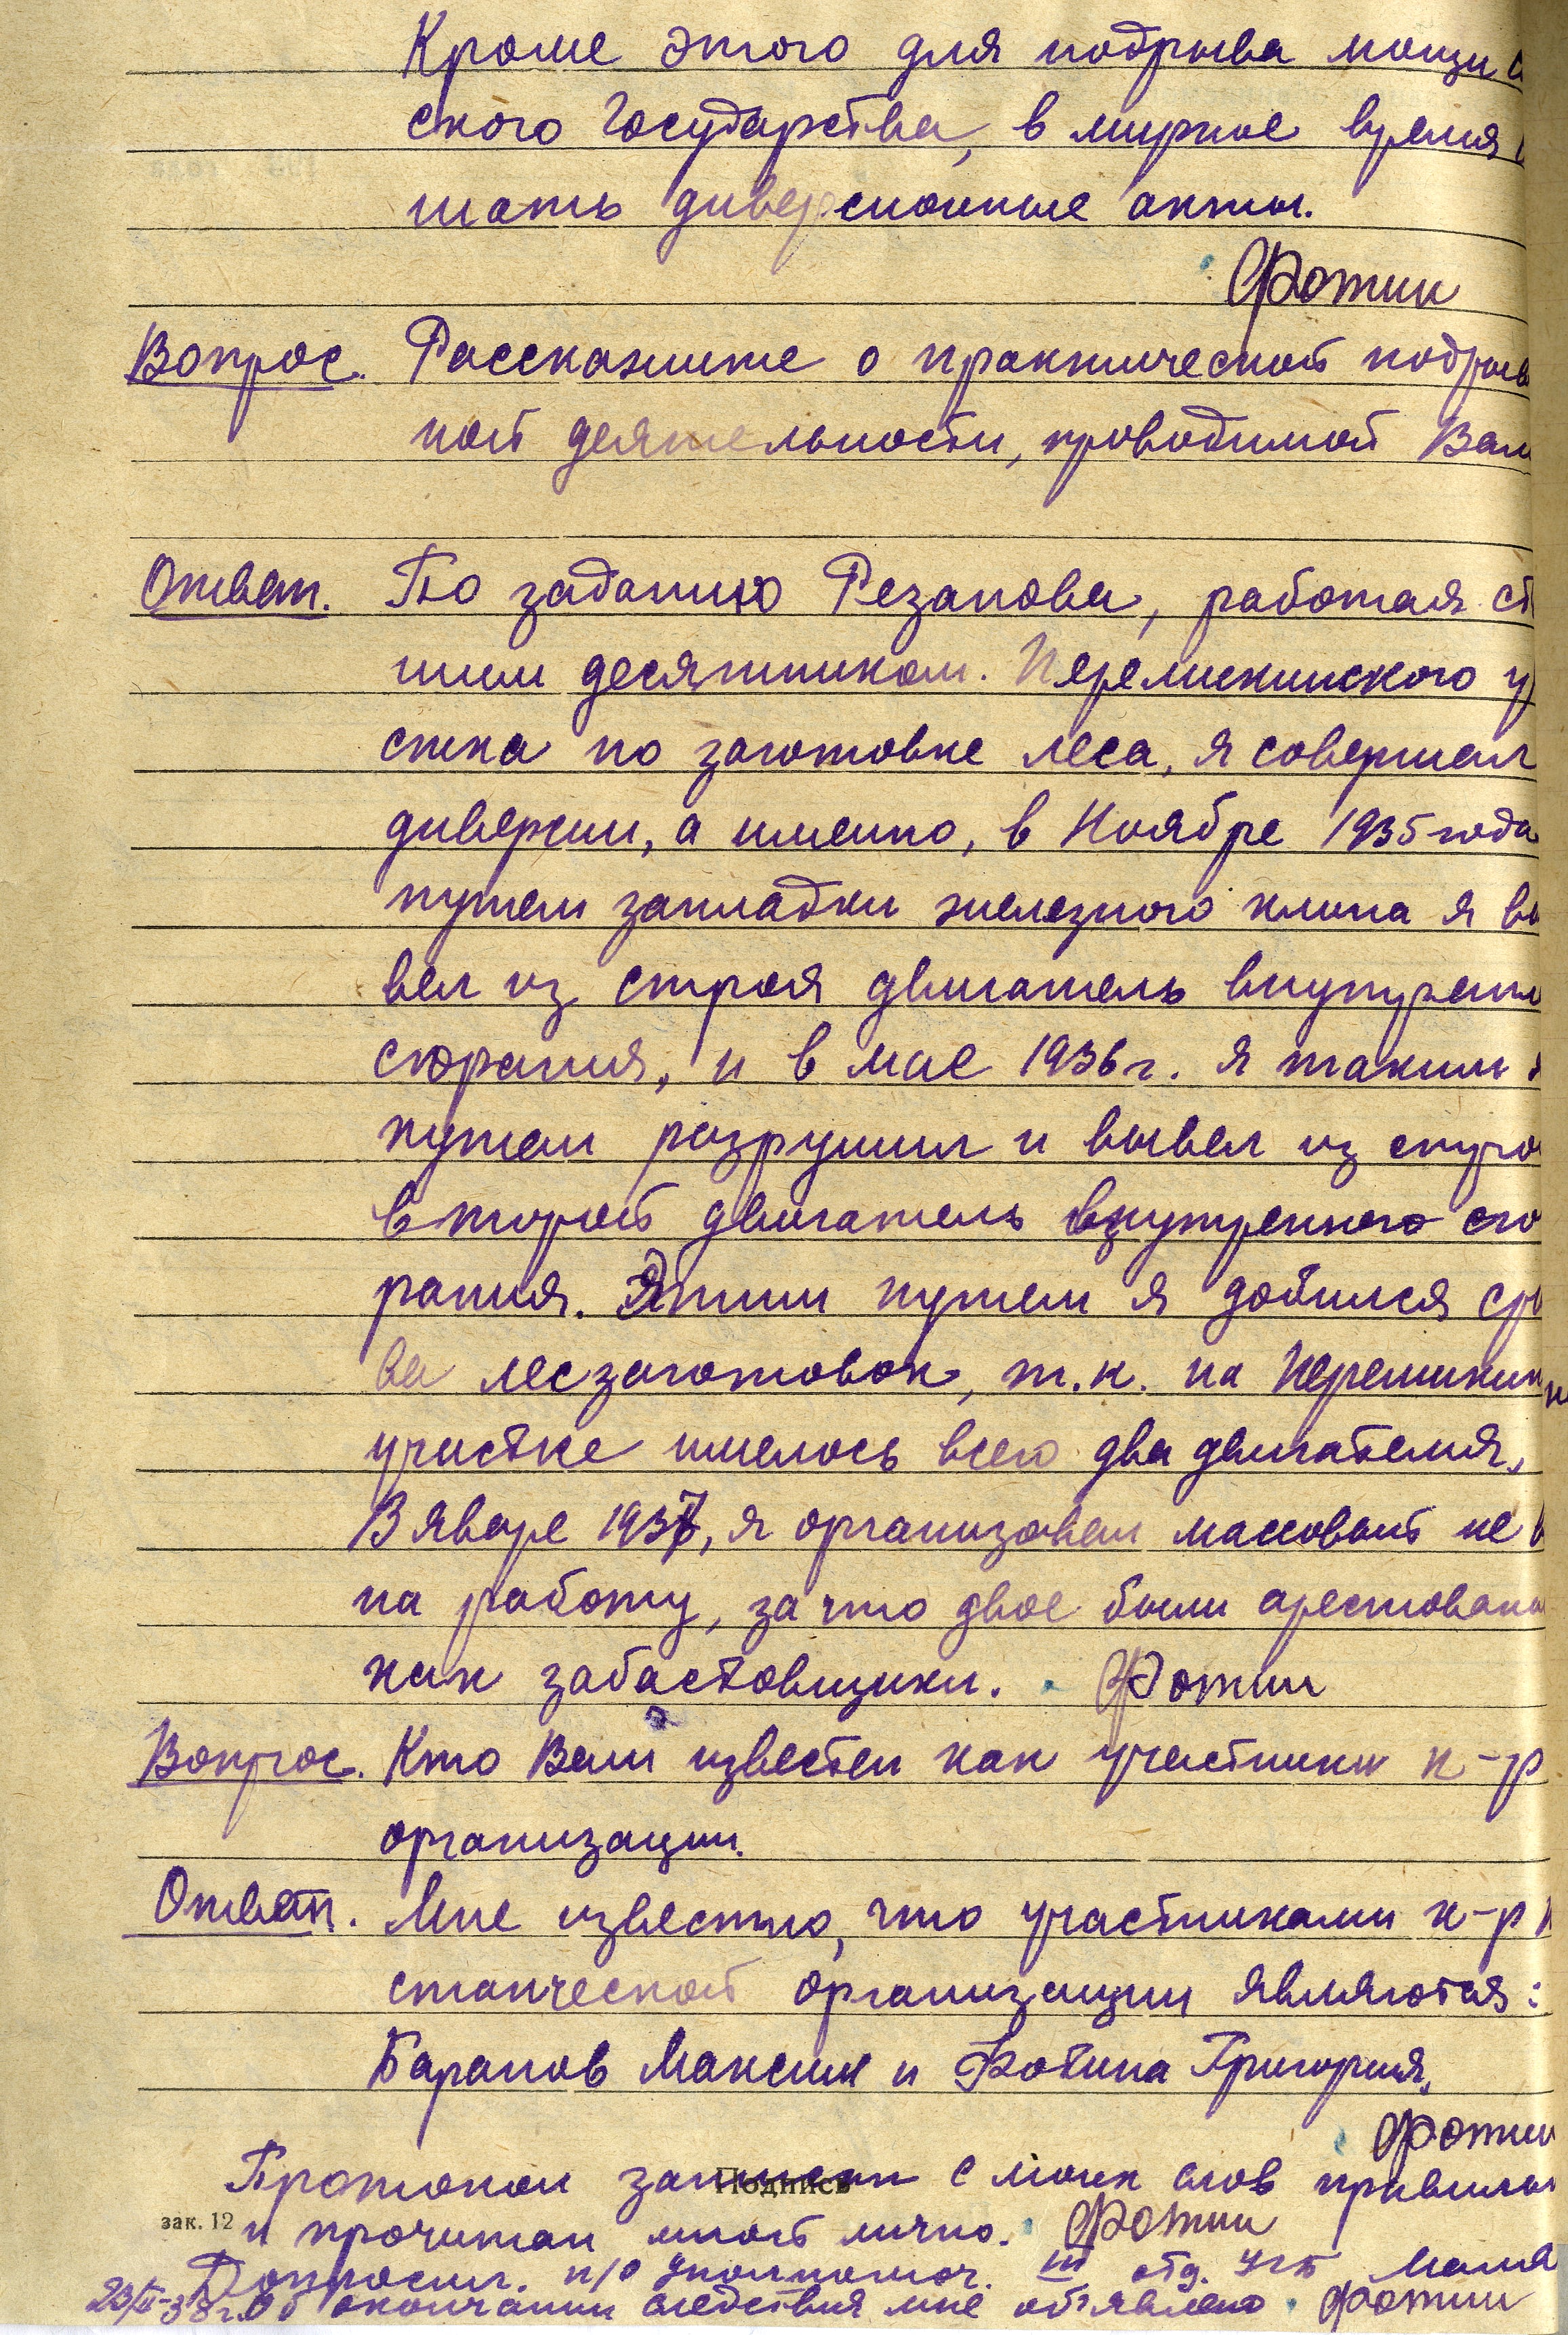 Кроме этого для подрыва мощи
ского Государства, в мирное время
шать диверсионные акты.
Фотин
Вопрос. Расскажите о практической подрыв
ной деятельности, проводимой Вам
Ответ. По заданию Резанова, работая ст
шим десятником. Перемискинского у
стка по заготовке леса, я совершал
диверсии, а именно, в Ноябре 1935 года
путем закладки железного клина я вы
вел из строя двигатель внутренне
сгорания, и в мае 1936 г. я таким
путем разрушил и вывел из стро
второй двигатель внутренного сго
рания. Этим путем я добился сры
ва лесзаготовок, т.к. на
участке имелось всего два двигателя.
В январе 1937, я организовал массовый не в
на работу, за что двое были арестованы
как забастовщики. Фотин
Вопрос. Кто Вам известен как участники к-р
организации.
Ответ. Мне известно, что участниками к-р п
станческой организации являются:
Баранов Максим и Фотина Григория.
Фотин
Протокол записан с моих слов правильно
Подпись
зак. 12 и прочитан мной лично. Фотин
Допросил. п/о Уполномоч. III отд. УГБ
23/II-38 г. Об окончании следствия мне объявлено. Фотин